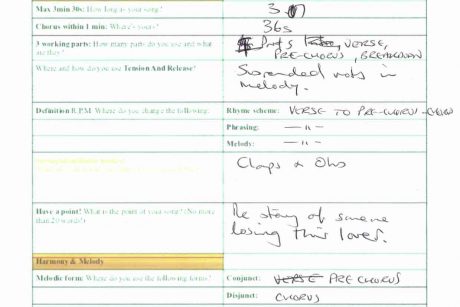 Max 3min 30s: How long is your song?
3.
Chorus within 1 min: Where's yours?
36s
3 working parts: How many parts do you use and what are they?
Parts, VERSE,
PRE-CHORUS, BREAKDOWN
Where and how do you use Tension And Release?
Suspended nots in
melody.
Definition R.P.M: Where do you change the following:
Rhyme scheme: VERSE TO PRE-CHORUS - CHORUS
Phrasing: — 11 —
Melody: — 11 —
Claps & Ohs
Have a point! What is the point of your song? (No more than 20 words!)
The story of someone
losing this lover.
Harmony & Melody
Melodic form: Where do you use the following forms?
Conjunct: VERSE PRE CHORUS
Disjunct: CHORUS